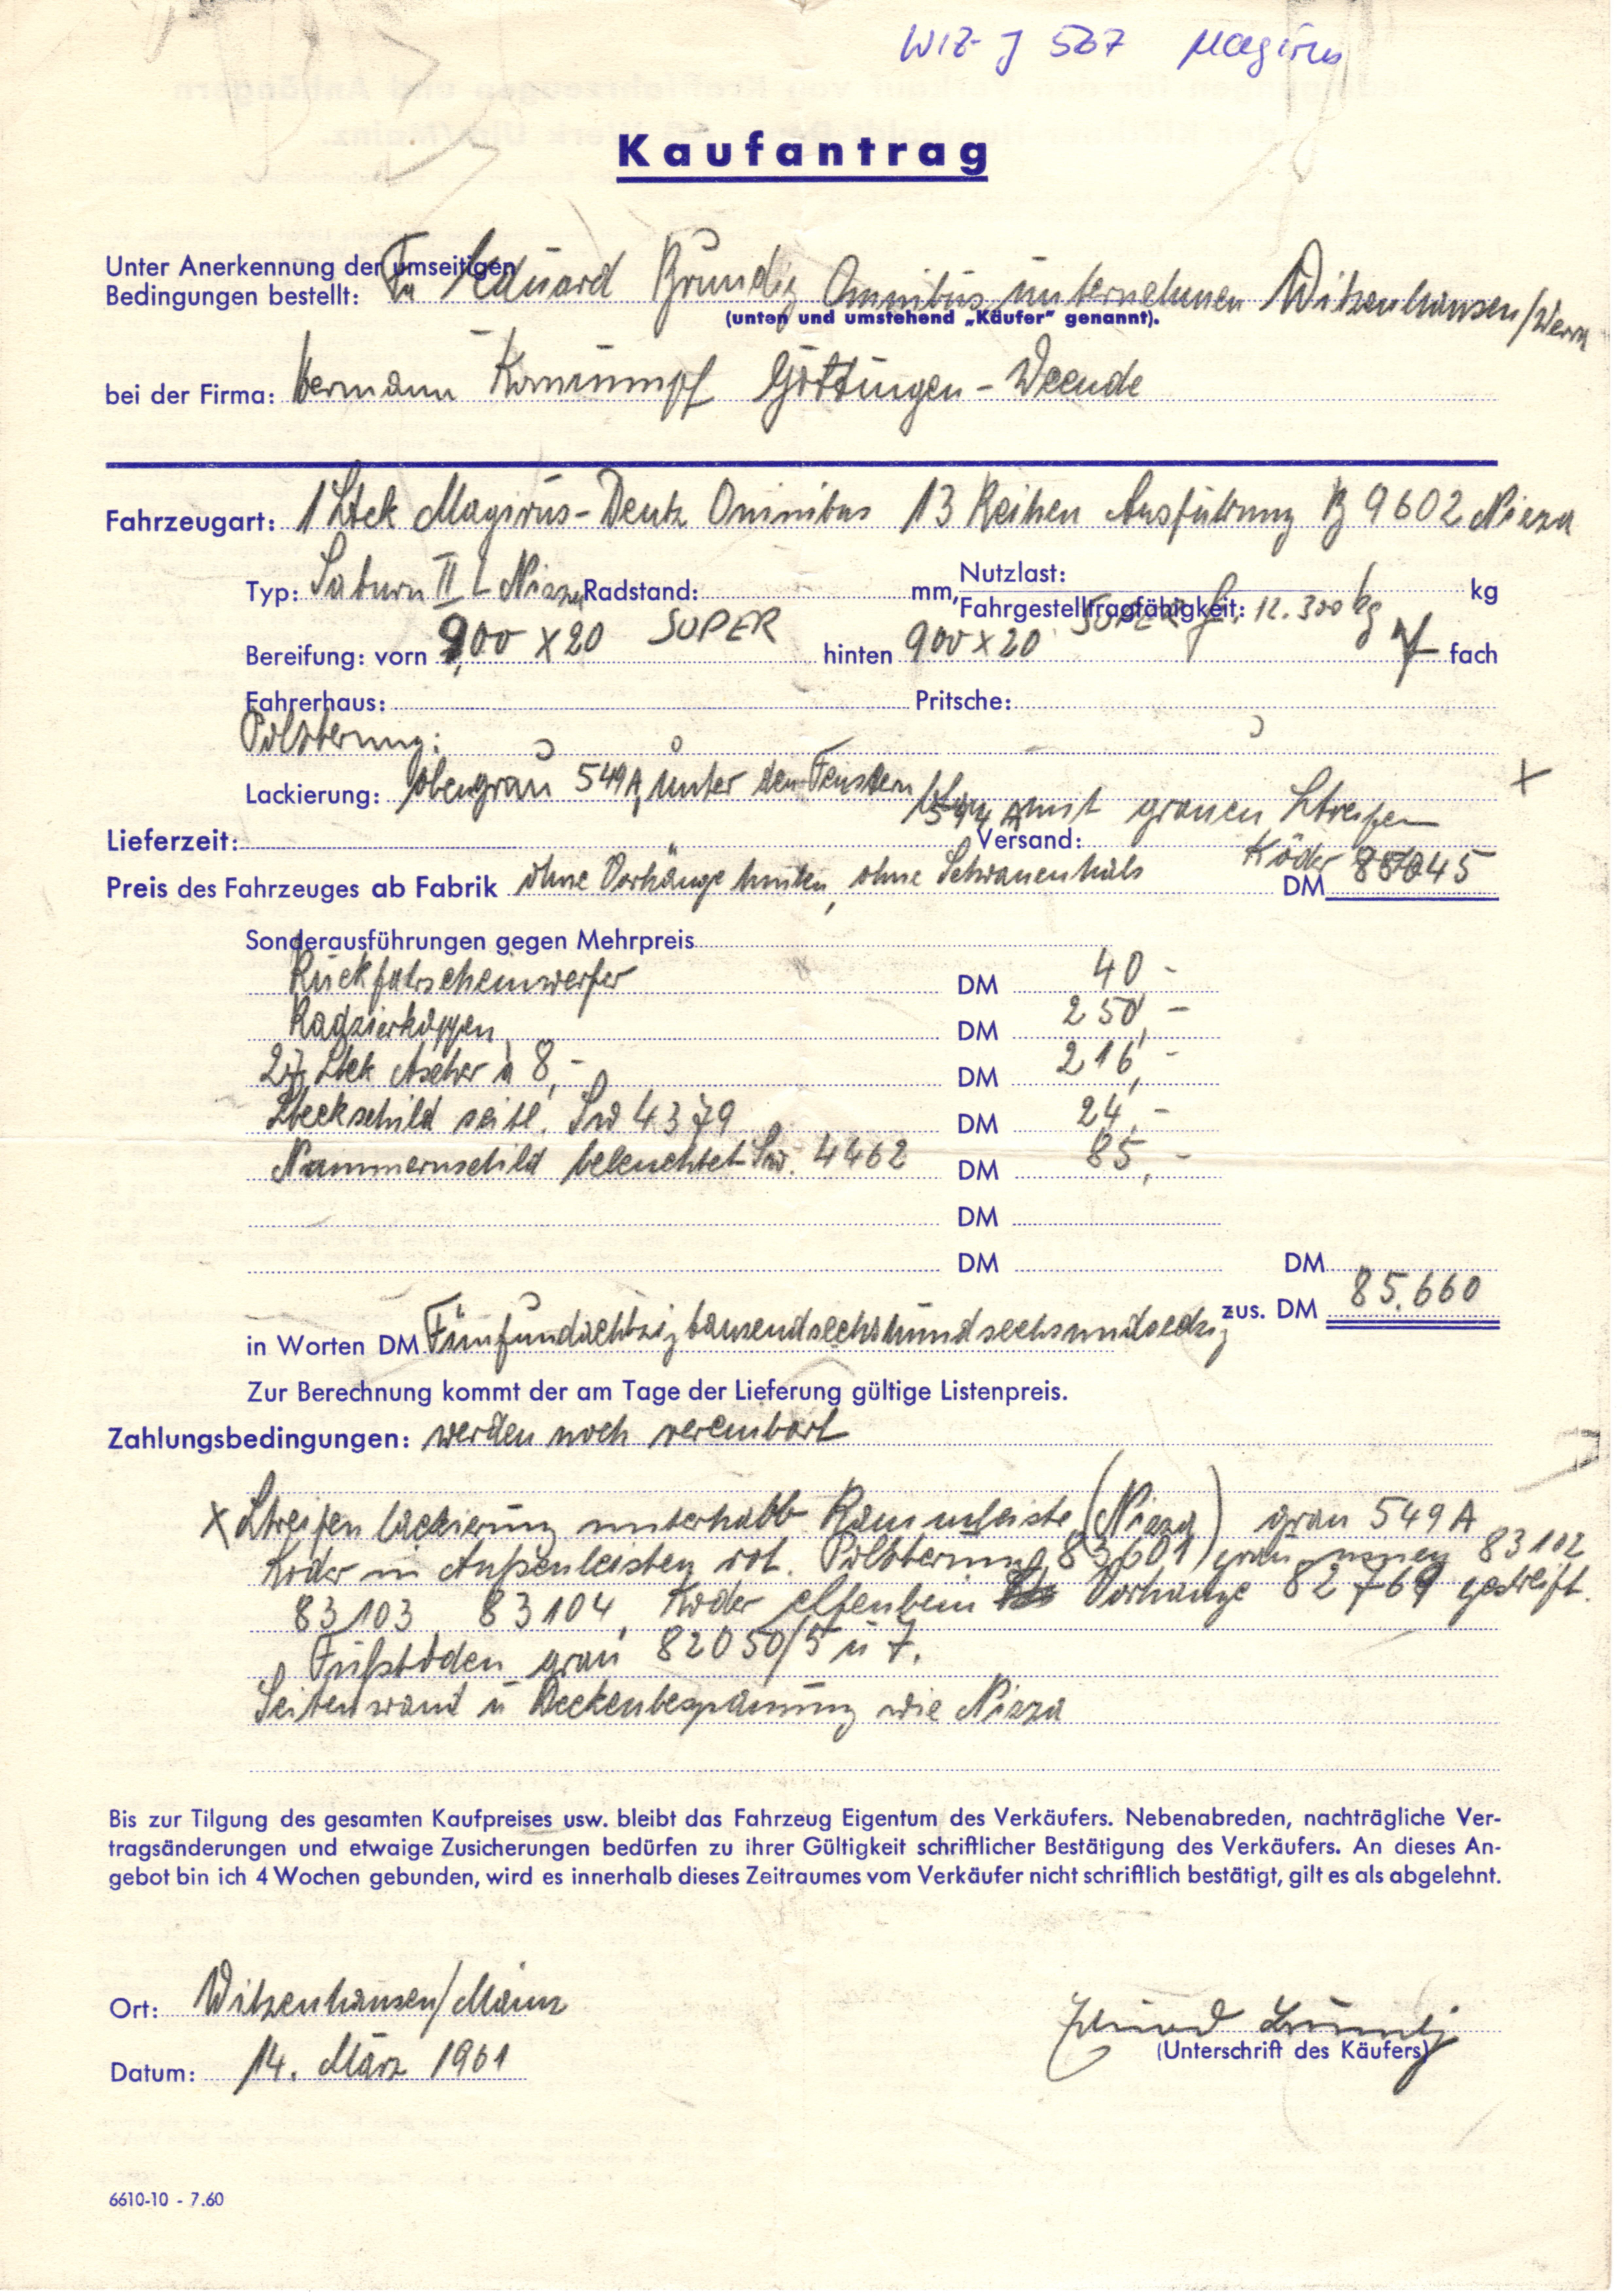 WIZ-J 567 Magirus
Kaufantrag
Unter Anerkennung der umseitigen
Bedingungen bestellt: Fa Eduard Grundig Omnibusunternehmen Witzenhausen/Werra
(unten und umstehend „Käufer" genannt).
bei der Firma: Hermann Göttingen-Weende
Fahrzeugart: 1 Stck Magirus-Deutz Omnibus 13 Reihen Ausführung B 9602 Nizza
Typ: Saturn II L Nizza Radstand: mm, Nutzlast: kg
Fahrgestelltragfähigkeit: 12.300 kg
Bereifung: vorn 9,00 x 20 SUPER hinten 900 x 20 SUPER fach
Fahrerhaus: Pritsche:
Polsterung:
Lackierung: oben grau 549A, unter den Fenstern mit grauen Streifen X
Lieferzeit: Versand: Köder
Preis des Fahrzeuges ab Fabrik ohne Vorhänge hinten, ohne Schwanenhals DM 85045
Sonderausführungen gegen Mehrpreis
Rückfahrscheinwerfer DM 40 -
Radzierkappen DM 250,-
27 Stck Ascher à 8,- DM 216,-
Steckschild seitl. Sw 4379 DM 24,-
Nummernschild beleuchtet Sw. 4462 DM 85,-
DM
DM DM
zus. DM 85.660
in Worten DM Fünfundachtzigtausendsechshundsechsundsechzig
Zur Berechnung kommt der am Tage der Lieferung gültige Listenpreis.
Zahlungsbedingungen: werden noch vereinbart
X Streifenlackierung unterhalb Rammleiste (Nizza) grau 549 A
Köder in Außenleisten rot. Polsterung 83601 grau 83102
83103 83104, Köder elfenbein Vorhänge 82769 gestreift.
Fußböden grau 82050/5 u 7.
Seitenwand u Deckenbespannung wie Nizza
Bis zur Tilgung des gesamten Kaufpreises usw. bleibt das Fahrzeug Eigentum des Verkäufers. Nebenabreden, nachträgliche Ver-
tragsänderungen und etwaige Zusicherungen bedürfen zu ihrer Gültigkeit schriftlicher Bestätigung des Verkäufers. An dieses An-
gebot bin ich 4 Wochen gebunden, wird es innerhalb dieses Zeitraumes vom Verkäufer nicht schriftlich bestätigt, gilt es als abgelehnt.
Ort: Witzenhausen/Mainz
Datum: 14. März 1961
(Unterschrift des Käufers)
6610-10 - 7.60